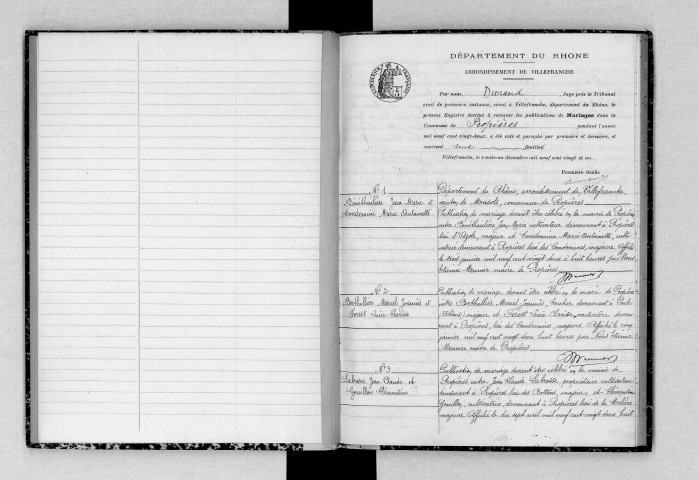 DÉPARTEMENT DU RHONE
ARRONDISSEMENT DE VILLEFRANCHE
Par nous, Durand, Juge près le Tribunal
civil de première instance, séant à Villefranche, département du Rhône, le
présent Registre destiné à recevoir les publications de Mariages dans la
Commune de Propières pendant l'année
mil neuf cent vingt-deux, a été coté et paraphé par première et dernière, et
contient feuillet
Villefranche, le trente-un décembre mil neuf cent vingt et un.
Première feuille
N° 1
Jean Marie et
Condemine Marie Antoinette
Département du Rhône, arrondissement de Villefranche,
canton de Monsols, commune de Propières
Publication de mariage devant être célébré en la mairie de Propières
entre Jean Marie cultivateur demeurant à Propières
lieu d'Azole, majeur et Condemine Marie Antoinette, culti-
vateur demeurant à Propières lieu des Condemines, majeure Affiché
le trois janvier mil neuf cent vingt deux à huit heures par Nous
Etienne Monnier maire de Propières
N° 2
Berthillier Marcel Joannès et
Forest Marie Clarisse
Publication de mariage devant être célébré en la mairie de Propières
entre Berthillier Marcel Joannès, demeurant à
Rhône, majeur et Forest Clarisse, demeu-
rant à Propières, lieu des Condemines, majeure Affiché le cinq
janvier mil neuf cent vingt deux huit heures par Nous Etienne
Monnier maire de Propières
N° 3
Labrosse Jean Claude et
Publication de mariage devant être célébré en la mairie de
Propières entre Jean Claude Labrosse propriétaire cultivateur
demeurant à Propières lieu des majeur et
cultivatrice, demeurant à Propières lieu de
majeure Affiché le dix sept avril mil neuf cent vingt deux huit